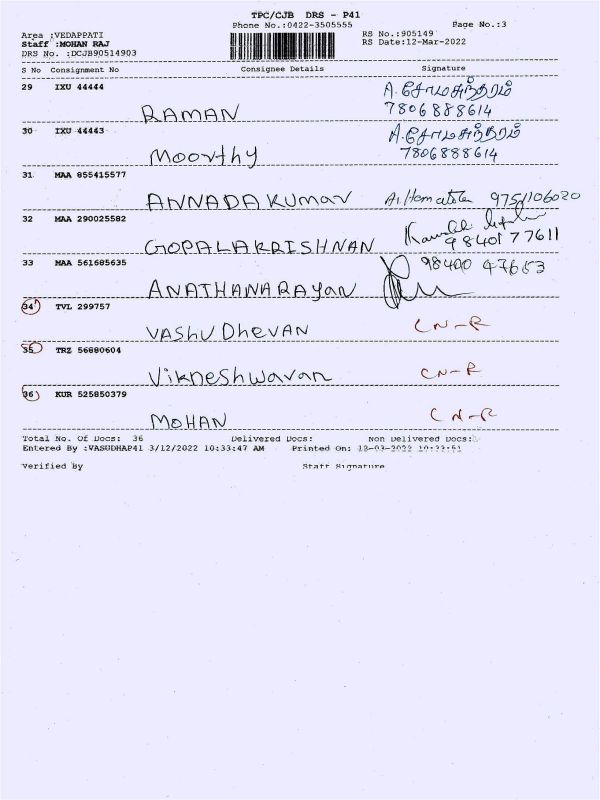 TPC/CJB DRS - P41
Phone No.:0422-3505555 Page No.:3
Area :VEDAPPATI RS No.:905149
Staff :MOHAN RAJ RS Date:12-Mar-2022
DRS No. :DCJB90514903
S No Consignment No Consignee Details Signature
29 IXU 44444 A. சோமசுந்தரம்
RAMAN 7806888614
30 IXU 44443 A. சோமசுந்தரம்
Moorthy 7806888614
31 MAA 855415577
ANNADA KUMAR
32 MAA 290025582
GOPALAKRISHNAN 98401 77611
33 MAA 561685635 98400 47653
ANATHANARAYAN
34 TVL 299757
VASHU DHEVAN CN-R
35 TRZ 56880604
Vikneshwaran CN-R
36 KUR 525850379
MOHAN CN-R
Total No. Of Docs: 36 Delivered Docs: Non Delivered Docs:
Entered By :VASUDHAP41 3/12/2022 10:33:47 AM Printed On: 12-03-2022 10:33:51
Verified By Staff Signature